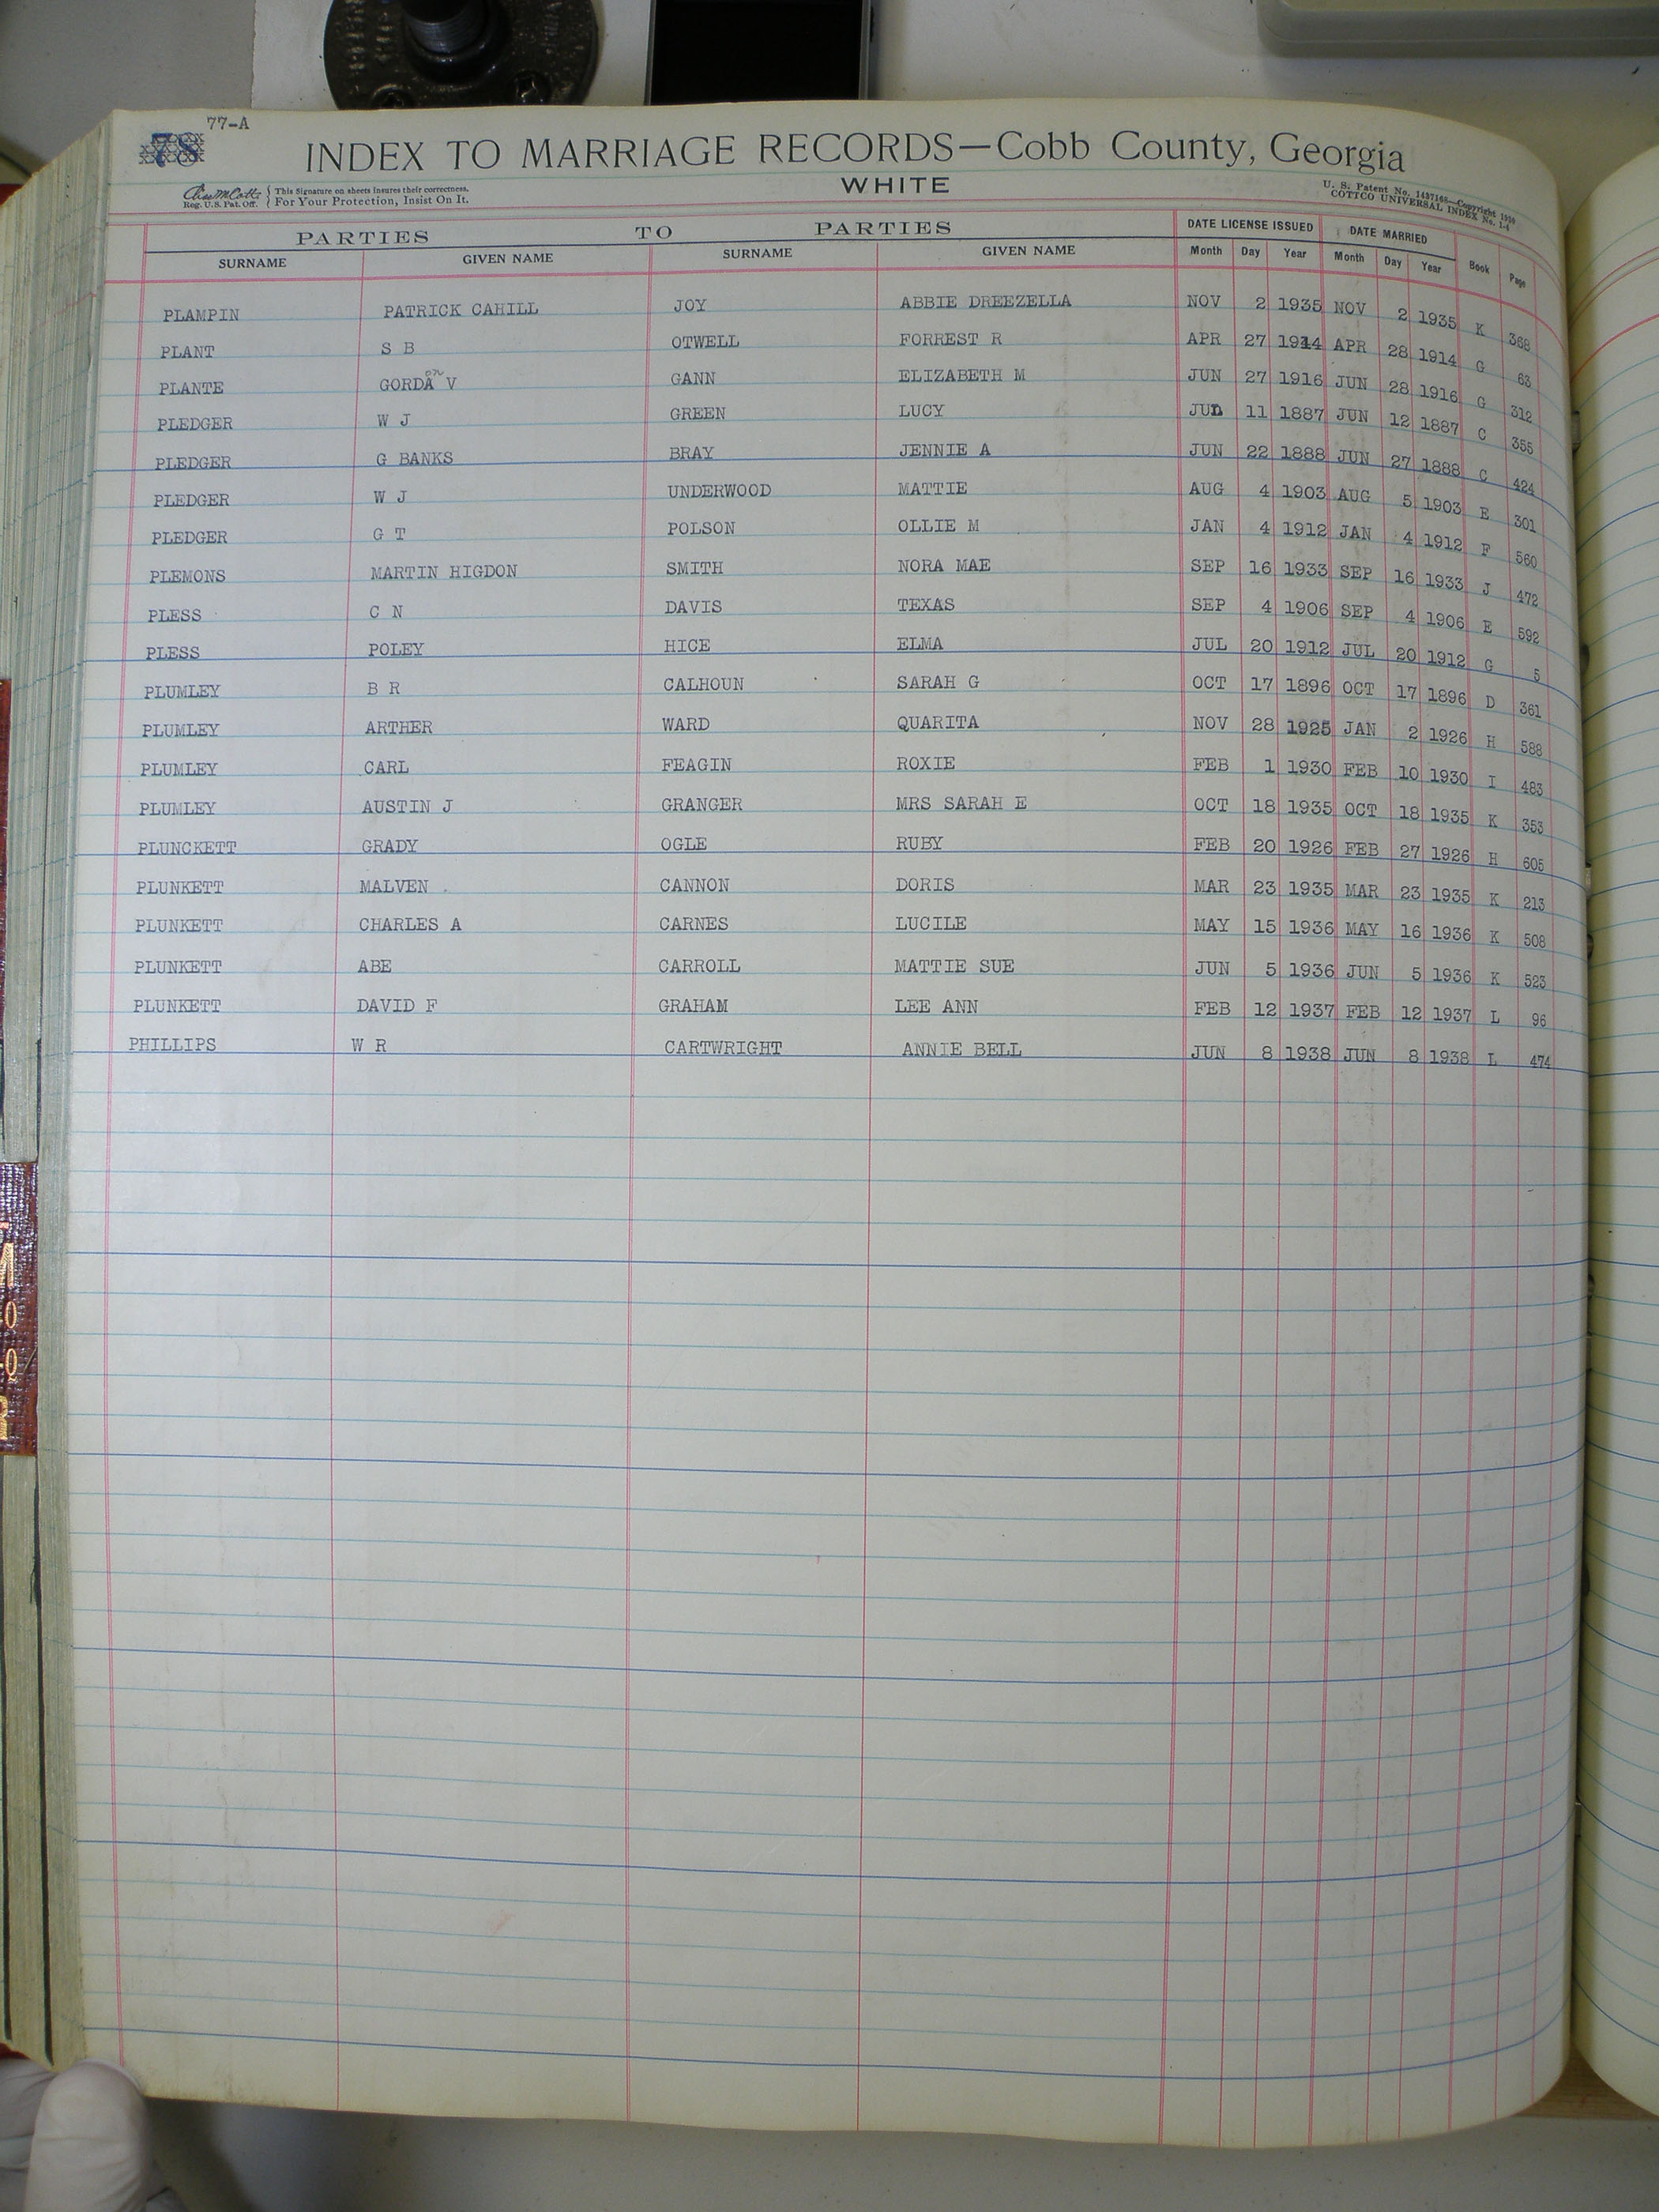 77-A
78
INDEX TO MARRIAGE RECORDS—Cobb County, Georgia
WHITE
This Signature on sheets insures their correctness.
Reg. U.S. Pat. Off. For Your Protection, Insist On It.
U. S. Patent No. 1497168—Copyright 1930
COTTCO UNIVERSAL INDEX No. 1-4
PARTIES TO PARTIES DATE LICENSE ISSUED DATE MARRIED
SURNAME GIVEN NAME SURNAME GIVEN NAME Month Day Year Month Day Year Book Page
PLAMPIN PATRICK CAHILL JOY ABBIE DREEZELLA NOV 2 1935 NOV 2 1935 K 368
PLANT S B OTWELL FORREST R APR 27 1914 APR 28 1914 G 63
PLANTE GORDAon V GANN ELIZABETH M JUN 27 1916 JUN 28 1916 G 312
PLEDGER W J GREEN LUCY JUN 11 1887 JUN 12 1887 C 355
PLEDGER G BANKS BRAY JENNIE A JUN 22 1888 JUN 27 1888 C 424
PLEDGER W J UNDERWOOD MATTIE AUG 4 1903 AUG 5 1903 E 301
PLEDGER G T POLSON OLLIE M JAN 4 1912 JAN 4 1912 F 560
PLEMONS MARTIN HIGDON SMITH NORA MAE SEP 16 1933 SEP 16 1933 J 472
PLESS C N DAVIS TEXAS SEP 4 1906 SEP 4 1906 E 592
PLESS POLEY HICE ELMA JUL 20 1912 JUL 20 1912 G 5
PLUMLEY B R CALHOUN SARAH G OCT 17 1896 OCT 17 1896 D 361
PLUMLEY ARTHER WARD QUARITA NOV 28 1925 JAN 2 1926 H 588
PLUMLEY CARL FEAGIN ROXIE FEB 1 1930 FEB 10 1930 I 483
PLUMLEY AUSTIN J GRANGER MRS SARAH E OCT 18 1935 OCT 18 1935 K 353
PLUNCKETT GRADY OGLE RUBY FEB 20 1926 FEB 27 1926 H 605
PLUNKETT MALVEN CANNON DORIS MAR 23 1935 MAR 23 1935 K 213
PLUNKETT CHARLES A CARNES LUCILE MAY 15 1936 MAY 16 1936 K 508
PLUNKETT ABE CARROLL MATTIE SUE JUN 5 1936 JUN 5 1936 K 523
PLUNKETT DAVID F GRAHAM LEE ANN FEB 12 1937 FEB 12 1937 L 96
PHILLIPS W R CARTWRIGHT ANNIE BELL JUN 8 1938 JUN 8 1938 L 474